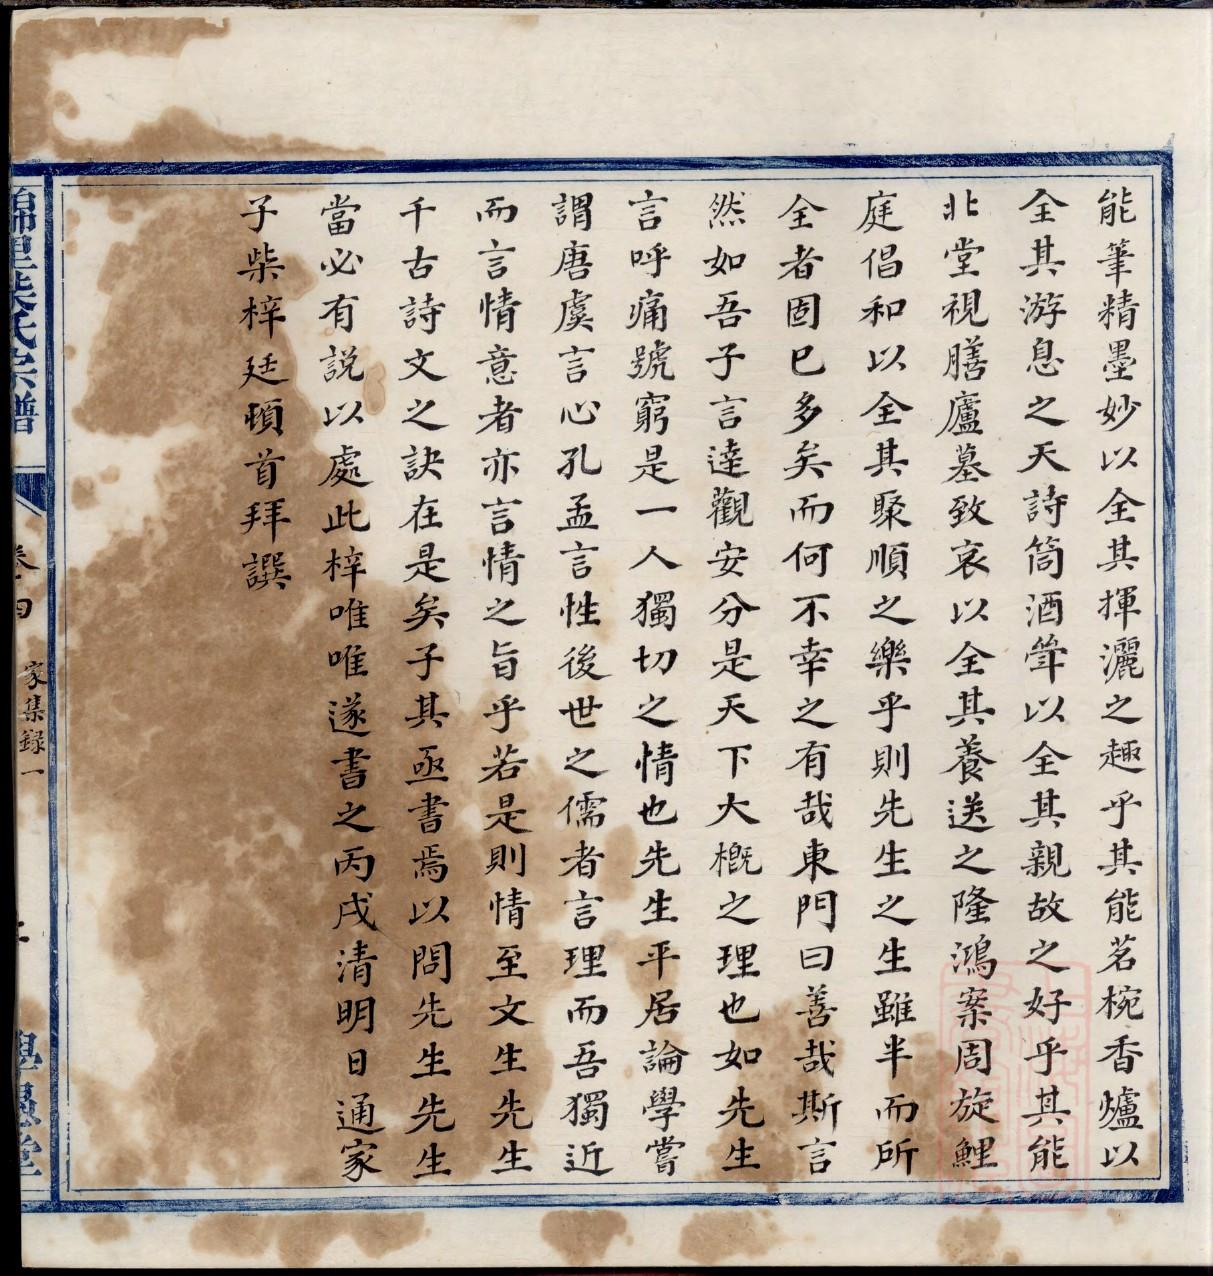 能筆精墨妙以全其揮灑之趣乎其能茗椀香爐以
全其游息之天詩筒酒聳以全其親故之好乎其能
北堂視膳廬墓致哀以全其養送之隆鴻案周旋鯉
庭倡和以全其聚順之樂乎則先生之生雖半而所
全者固已多矣而何不幸之有哉東門曰善哉斯言
然如吾子言達觀安分是天下大概之理也如先生
言呼痛號窮是一人獨切之情也先生平居論學嘗
謂唐虞言心孔孟言性後世之儒者言理而吾獨近
而言情意者亦言情之旨乎若是則情至文生先生
千古詩文之訣在是矣子其亟書焉以問先生先生
當必有説以處此梓唯唯遂書之丙戌清明日通家
子柴梓廷頓首拜譔
錦里柴氏宗譜
家集録一